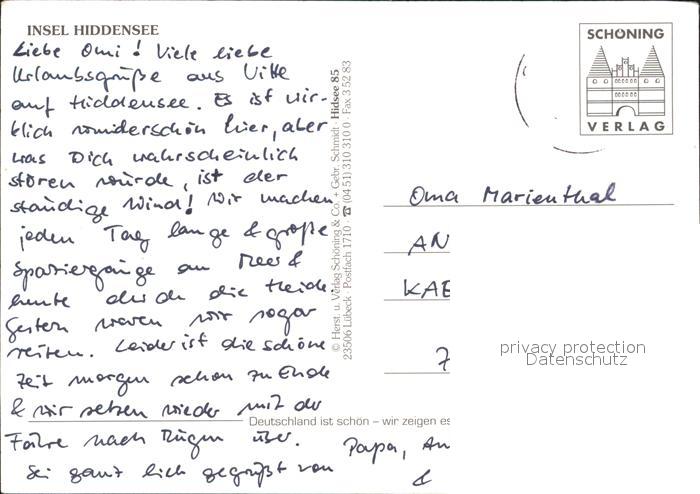 INSEL HIDDENSEE
Liebe Omi! Viele liebe
Urlaubsgrüße aus Vitte
auf Hiddensee. Es ist wir-
klich wunderschön hier, aber
was Dich wahrscheinlich
stören würde, ist der
ständige Wind! Wir machen
jeden Tag lange & große
Spaziergänge am Meer &
heute durch die Heide.
Gestern waren wir sogar
reiten. Leider ist die schöne
Zeit morgen schon zu Ende
& wir setzen wieder mit der
Fähre nach Rügen über.
Sei ganz lieb gegrüßt von
Papa, An
&
© Herst. u. Verlag Schöning & Co. + Gebr. Schmidt · Hidsee 85
23506 Lübeck · Postfach 1710 · ☎ (04 51) 310 310 0 · Fax 3 52 83
Deutschland ist schön – wir zeigen es
SCHÖNING
VERLAG
Oma Marienthal
AN
KAE
7
privacy protection
Datenschutz